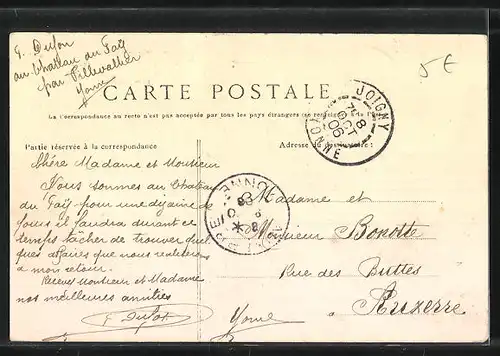 F. Dufon
au Chateau du Faÿ
par Villevallier
Yonne
5€
CARTE POSTALE
La correspondance au recto n'est pas acceptée par tous les pays étrangers (se renseigner à la Poste)
JOIGNY
YONNE
8 OCT 06
Partie réservée à la correspondance
Adresse du destinataire:
Chère Madame et Monsieur
Nous sommes au Chateau
du Faÿ pour une dizaine de
jours il faudra durant ce
temps tâcher de trouver quel
ques affaires que nous reduterons
a mon retour.
Recevez Monsieur et Madame
nos meilleures amitiés
F Dufon
Madame et
Monsieur Bonotte
Rue des Buttes
Auxerre
Yonne